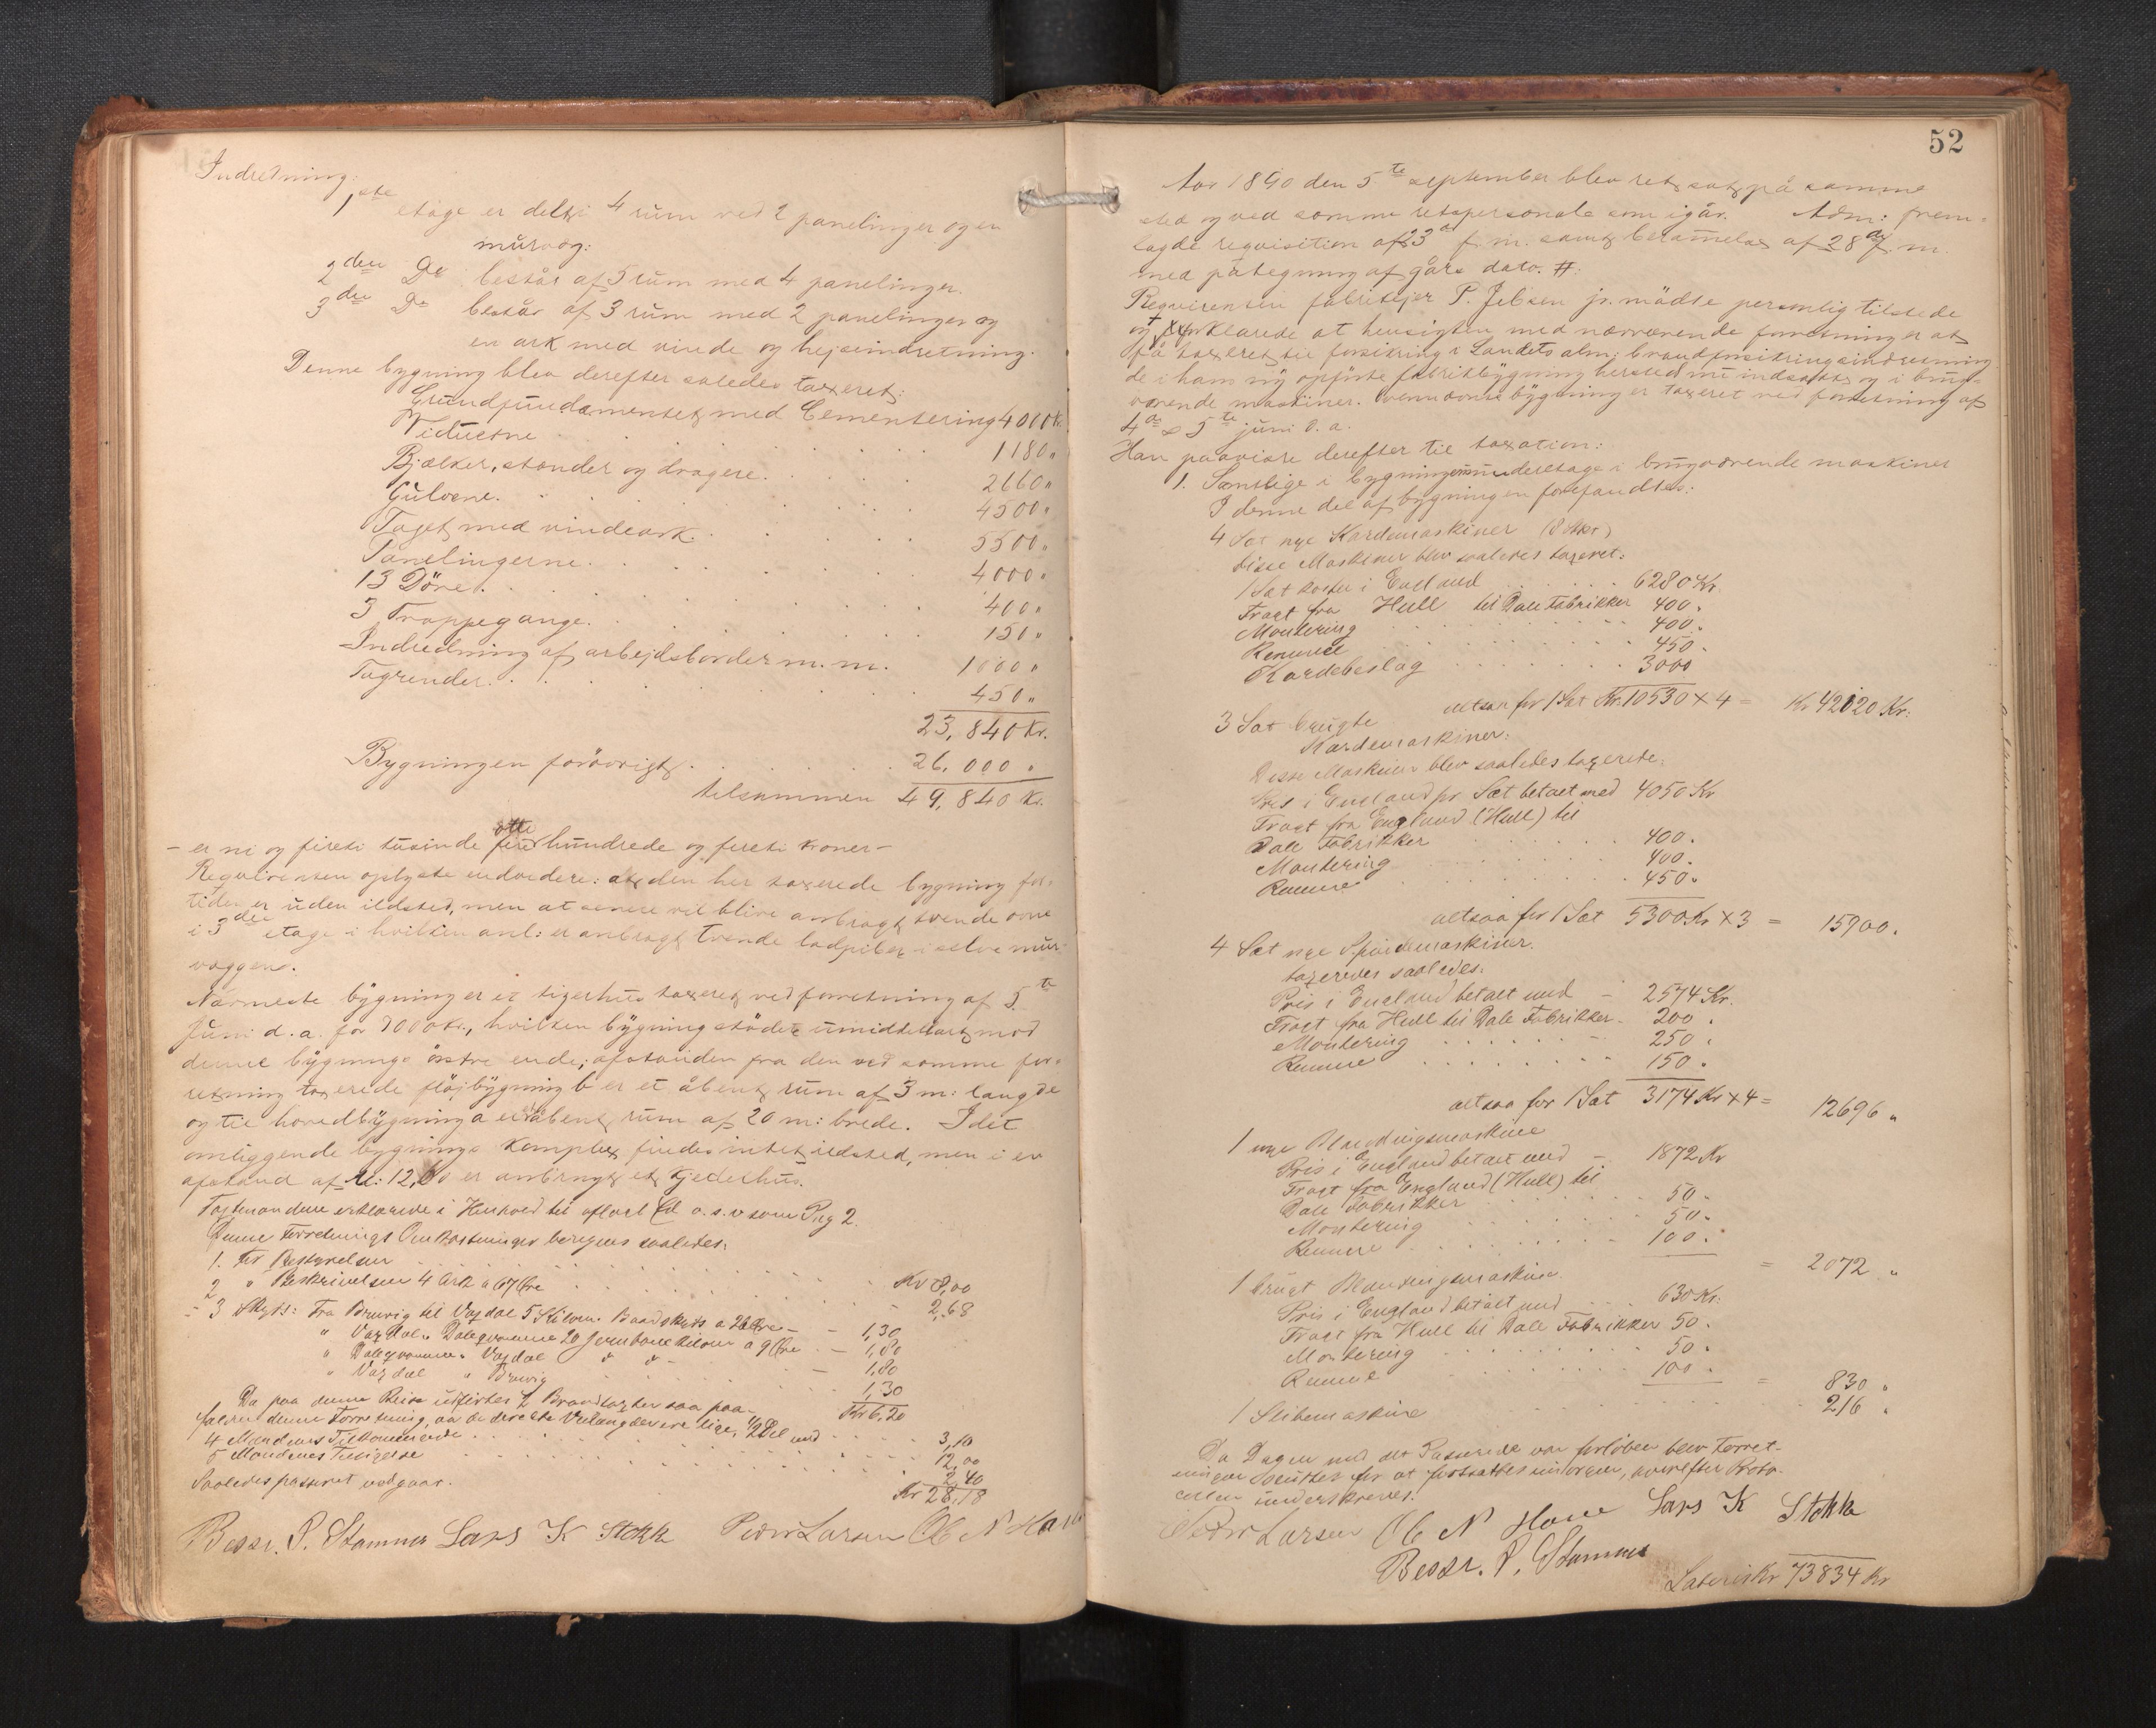 Indretning:
1ste etage er delt i 4 rum ved 2 panelinger og en
murvæg:
2den Do består af 5 rum med 4 panelinger.
3die Do består af 3 rum med 2 panelinger og
en ark med vinde og hejseindretning.
Denne bygning blev derefter således taxeret:
Grundfundamentet med Cementering 4000 Kr.
Viduerne . . . . 1180 "
Bjælker, stænder og dragere . . . . 2660 "
Gulvene . . . . 4500 "
Taget med vindeark . . . . 5500 "
Panelingerne . . . . 4000 "
13 Döre . . . . 400 "
3 Trappegange . . . . 150 "
Indredning af arbejdsborder m.m. 1000 "
Tagrender . . . . 450 "
23,840 Kr.
Bygningen forövrigt . . . . 26,000 "
tilsammen 49,840 Kr.
- er ni og fireti tusinde otte hundrede og fireti kroner -
Requirenten oplyste endvidere: at den her taxerede bygning for
tiden er uden ildsted, men at senere vil blive anbragt tvende ovne
i 3die etage i hvilken anl: er anbragt tvende ladpiber i selve mur-
væggen.
Nærmeste bygning er et sigerhus taxeret ved forretning af 5te
Juni d. a. for 9000 Kr., hvilken bygning stöder umiddelbart mod
denne bygnings östre ende; afstanden fra den ved samme for-
retning taxerede flöjbygning b er et åbent rum af 3 m: længde
og til hovedbygning a et åbent rum af 20 m: brede. I det
omliggende bygnings kompleg findes intet ildsted, men i en
afstand af M: 12,60 er anbragt et kjedelhus.
Taxtmændene erklærede i Henhold til aflagt Ed o.s.v som Pag 2.
Denne Forretnings Omkostninger beregnes saaledes:
1. For Bestyrelsen . . . . Kr 8,00
2 " Beskrivelsen 4 Ark a 67 Øre . . . . 2,68
3 Skyts: Fra Bruvig til Vaxdal 5 Kilom. Baadskyds a 26 Øre - 1,30
" Vaxdal " Dalegvamme 20 Jernbane kilom a 9 Øre - 1,80
" Dalegvamme " Vaxdal " " - 1,80
" Vaxdal " Bruvig . . . . 1,30
Kr 6,20
Da paa denne Reise udførtes 2 Brandtaxter saa paa-
falder denne Forretning, da de direkte Veilængder ere lige, 1/2 Del med . . . . 3,10
4 Mændenes Tilkommende . . . . 12,00
5 Mændenes Tilsigelse . . . . 2,40
Kr 28,18
Saaledes passeret vedgaar.
Bessr. P. Stamnes Lars K Stokka Peder Larsen Ole N Have
52
Aar 1890 den 5te september blev ret sat på samme
sted og ved samme retspersonale som igår. Adm: frem-
lagde requisition af 23de f.m. samt berammelse af 28de f.m.
med påtegning af gårs dato. #:
Requirenten fabrikejer P. Jebsen jr. mödte personlig tilstede
og forklarede at hensigten med nærværende forretning er at
få taxeret til forsikring i Landets alm: brandforsikringsindretning
de i hans ny opförte fabrikbygning hersted nu indsatte og i brug-
værende maskiner. Nævnte bygning er taxeret ved forretning af
4de & 5te juni d. a.
Han paaviste derefter til taxation:
1. Samtlige i bygningens underetage i brugværende maskiner
I denne del af bygningen forefandtes:
4 Sæt nye Kardemaskiner (8 Stkr)
Disse Maskiner blev saaledes taxeret:
1 Sæt koster i England . . . . 6280 Kr.
Fragt fra Hull til Dale Fabrikker 400 "
Montering . . . . 400 "
Remmer . . . . 450 "
Kardebeslag . . . . 3000
altsaa for 1 Sæt Kr. 10530 × 4 = Kr 42120 Kr:
3 Sæt brugte
Kardemaskiner:
Disse Maskiner blev saaledes taxerede:
Pris i England pr Sæt betalt med 4050 Kr
Fragt fra England (Hull) til
Dale Fabrikker . . . . 400 "
Montering . . . . 400 "
Remme . . . . 450 "
altsaa for 1 Sæt 5300 Kr × 3 = 15900 "
4 Sæt nye Spindemaskiner.
taxeredes saaledes:
Pris i England betalt med - 2574 Kr.
Fragt fra Hull til Dale Fabrikker - 200 "
Montering . . . . 250 "
Remme . . . . 150 "
altsaa for 1 Sæt 3174 Kr × 4 = 12696 "
1 nye Blandingsmaskine
Pris i England betalt med - 1872 Kr
Fragt fra England (Hull) til
Dale Fabrikker . . . . 50 "
Montering . . . . 50 "
Remme . . . . 100 "
= 2072 "
1 brugt Blandingsmaskine.
Pris i England betalt med . . . 630 Kr:
Fragt fra Hull til Dale Fabrikker 50 "
Montering . . . . 50 "
Remme . . . . 100 "
= 830 "
1 Slibemaskine . . . . 216 "
Da Dagen med det Passerede var forløben blev Forret-
ningen besluttet for at fortsættes imorgen, hvorefter Proto-
collen underskreves.
Peder Larsen Ole N Have Lars K Stokka
Bessr. P. Stamnes
Lateris Kr 73834 Kr